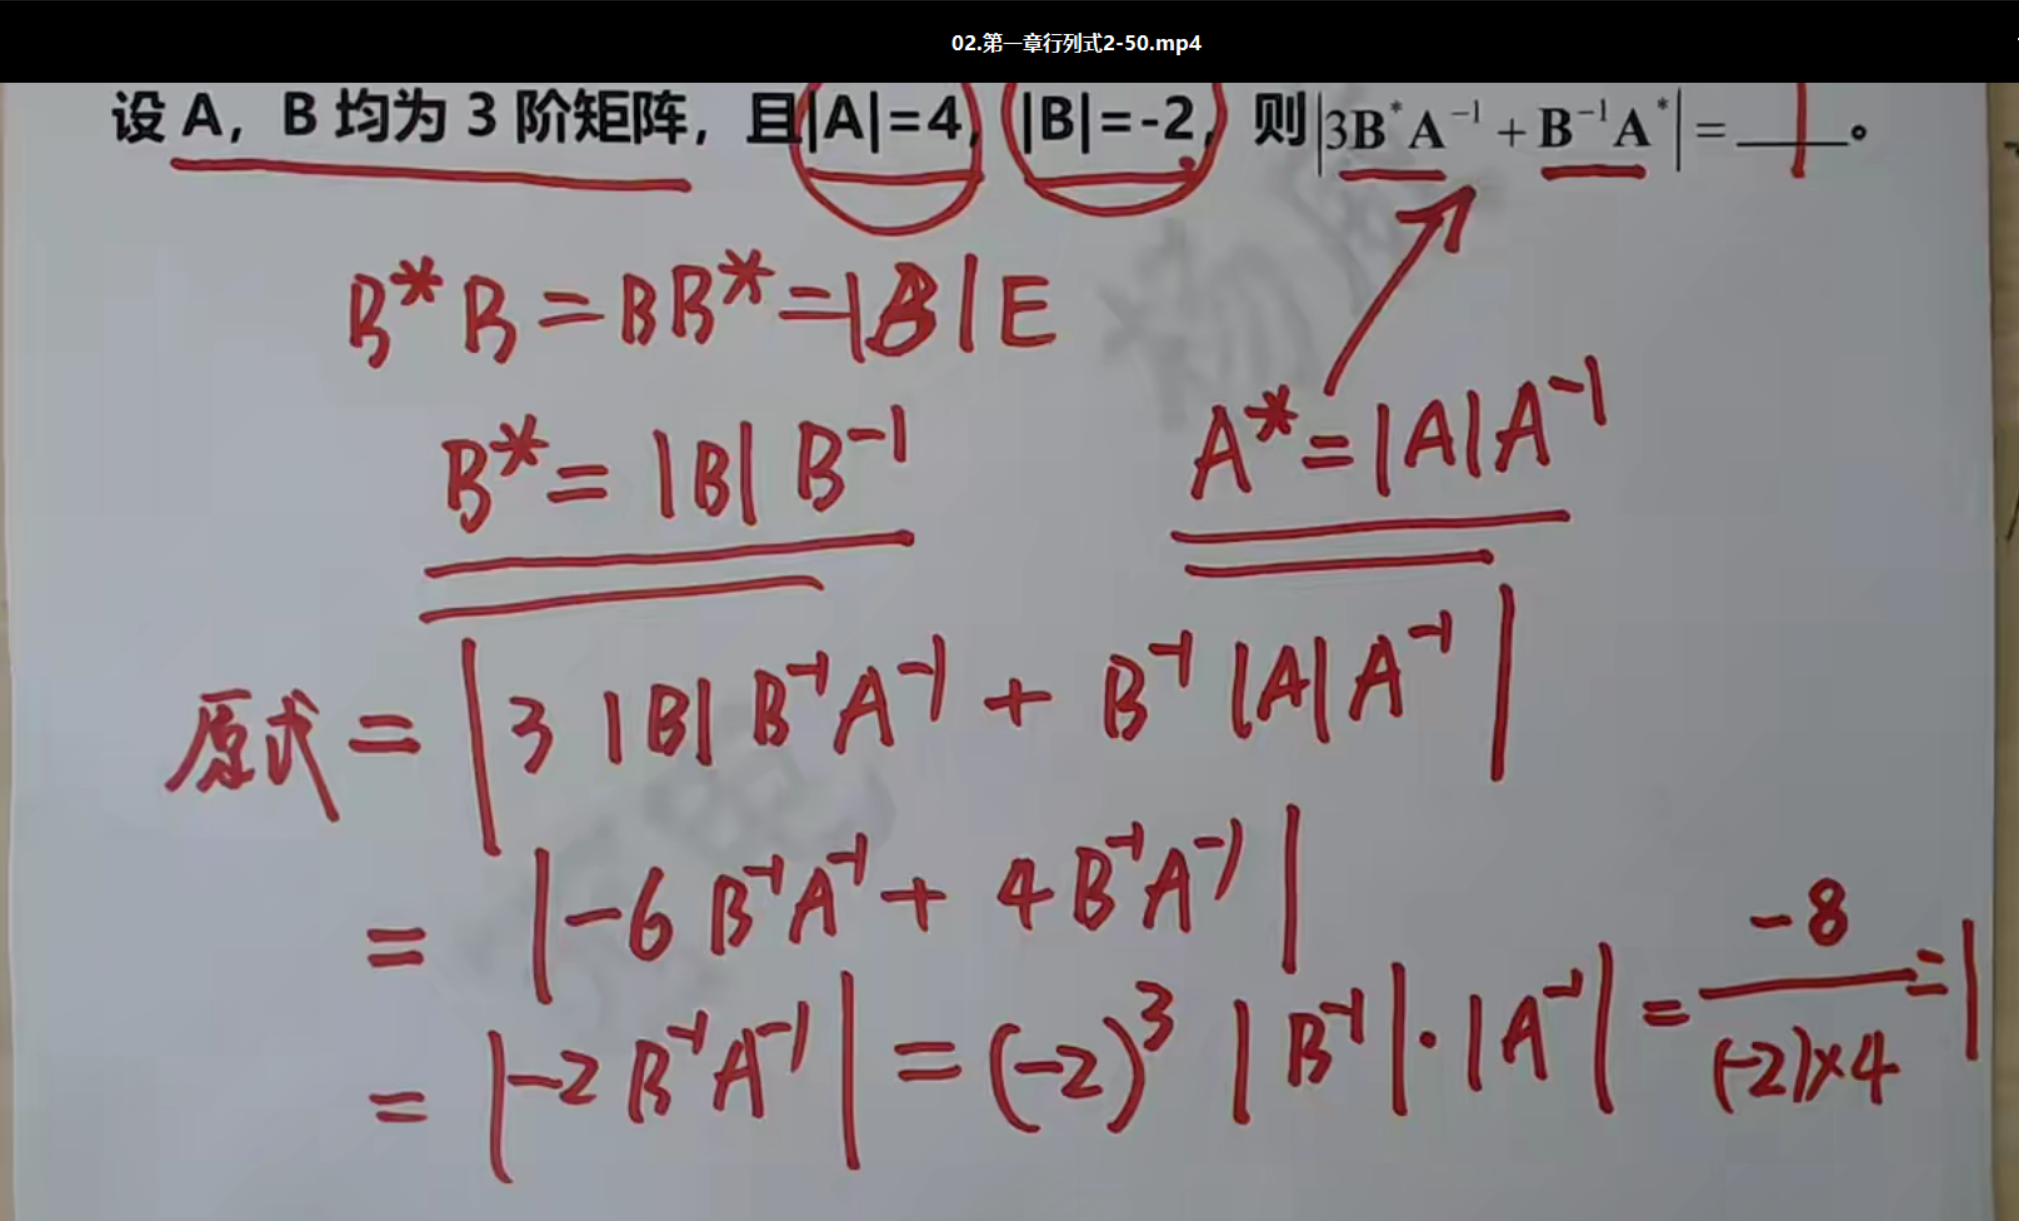 02.第一章行列式2-50.mp4
设 A，B 均为 3 阶矩阵，且|A|=4，|B|=-2，则|3B*A⁻¹+B⁻¹A*|=____。 1
B*B=BB*=|B|E
B*=|B|B⁻¹ A*=|A|A⁻¹
原式=|3|B|B⁻¹A⁻¹+B⁻¹|A|A⁻¹|
=|-6B⁻¹A⁻¹+4B⁻¹A⁻¹|
=|-2B⁻¹A⁻¹|=(-2)³|B⁻¹|·|A⁻¹|=-8/((-2)×4)=1